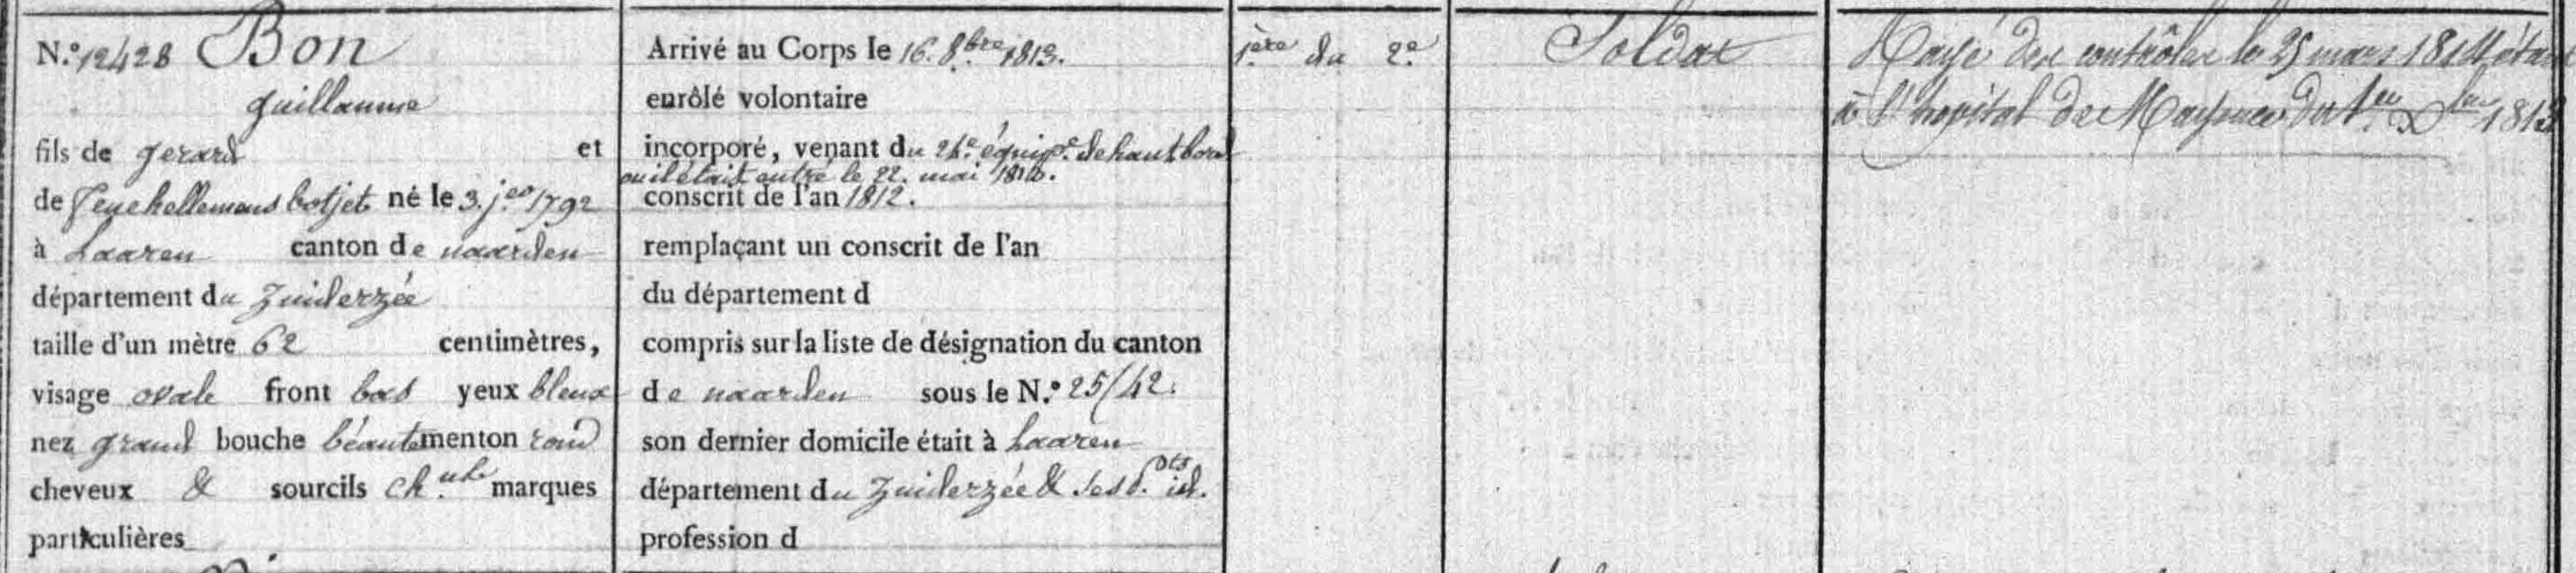 N.° 12428 Bon
guillaume
fils de gerard et
de né le 3. j.er 1792
à Laaren canton de naarden
département du Zuiderzée
taille d'un mètre 62 centimètres,
visage ovale front bas yeux bleux
nez grand bouche béante menton rond
cheveux & sourcils marques
particulières
Arrivé au Corps le 16. 8.bre 1813.
enrôlé volontaire
incorporé, venant du équip.e de haut bord
ou il était entré le 22. mai
conscrit de l'an 1812.
remplaçant un conscrit de l'an
du département d
compris sur la liste de désignation du canton
de naarden sous le N.° 25/42.
son dernier domicile était à Laaren
département du Zuiderzée &
profession d
1.ère du 2.e
Soldat
Rayé des contrôles le 25 mars 1814 étant
à l'hopital de Mayence du 1.er X.bre 1813